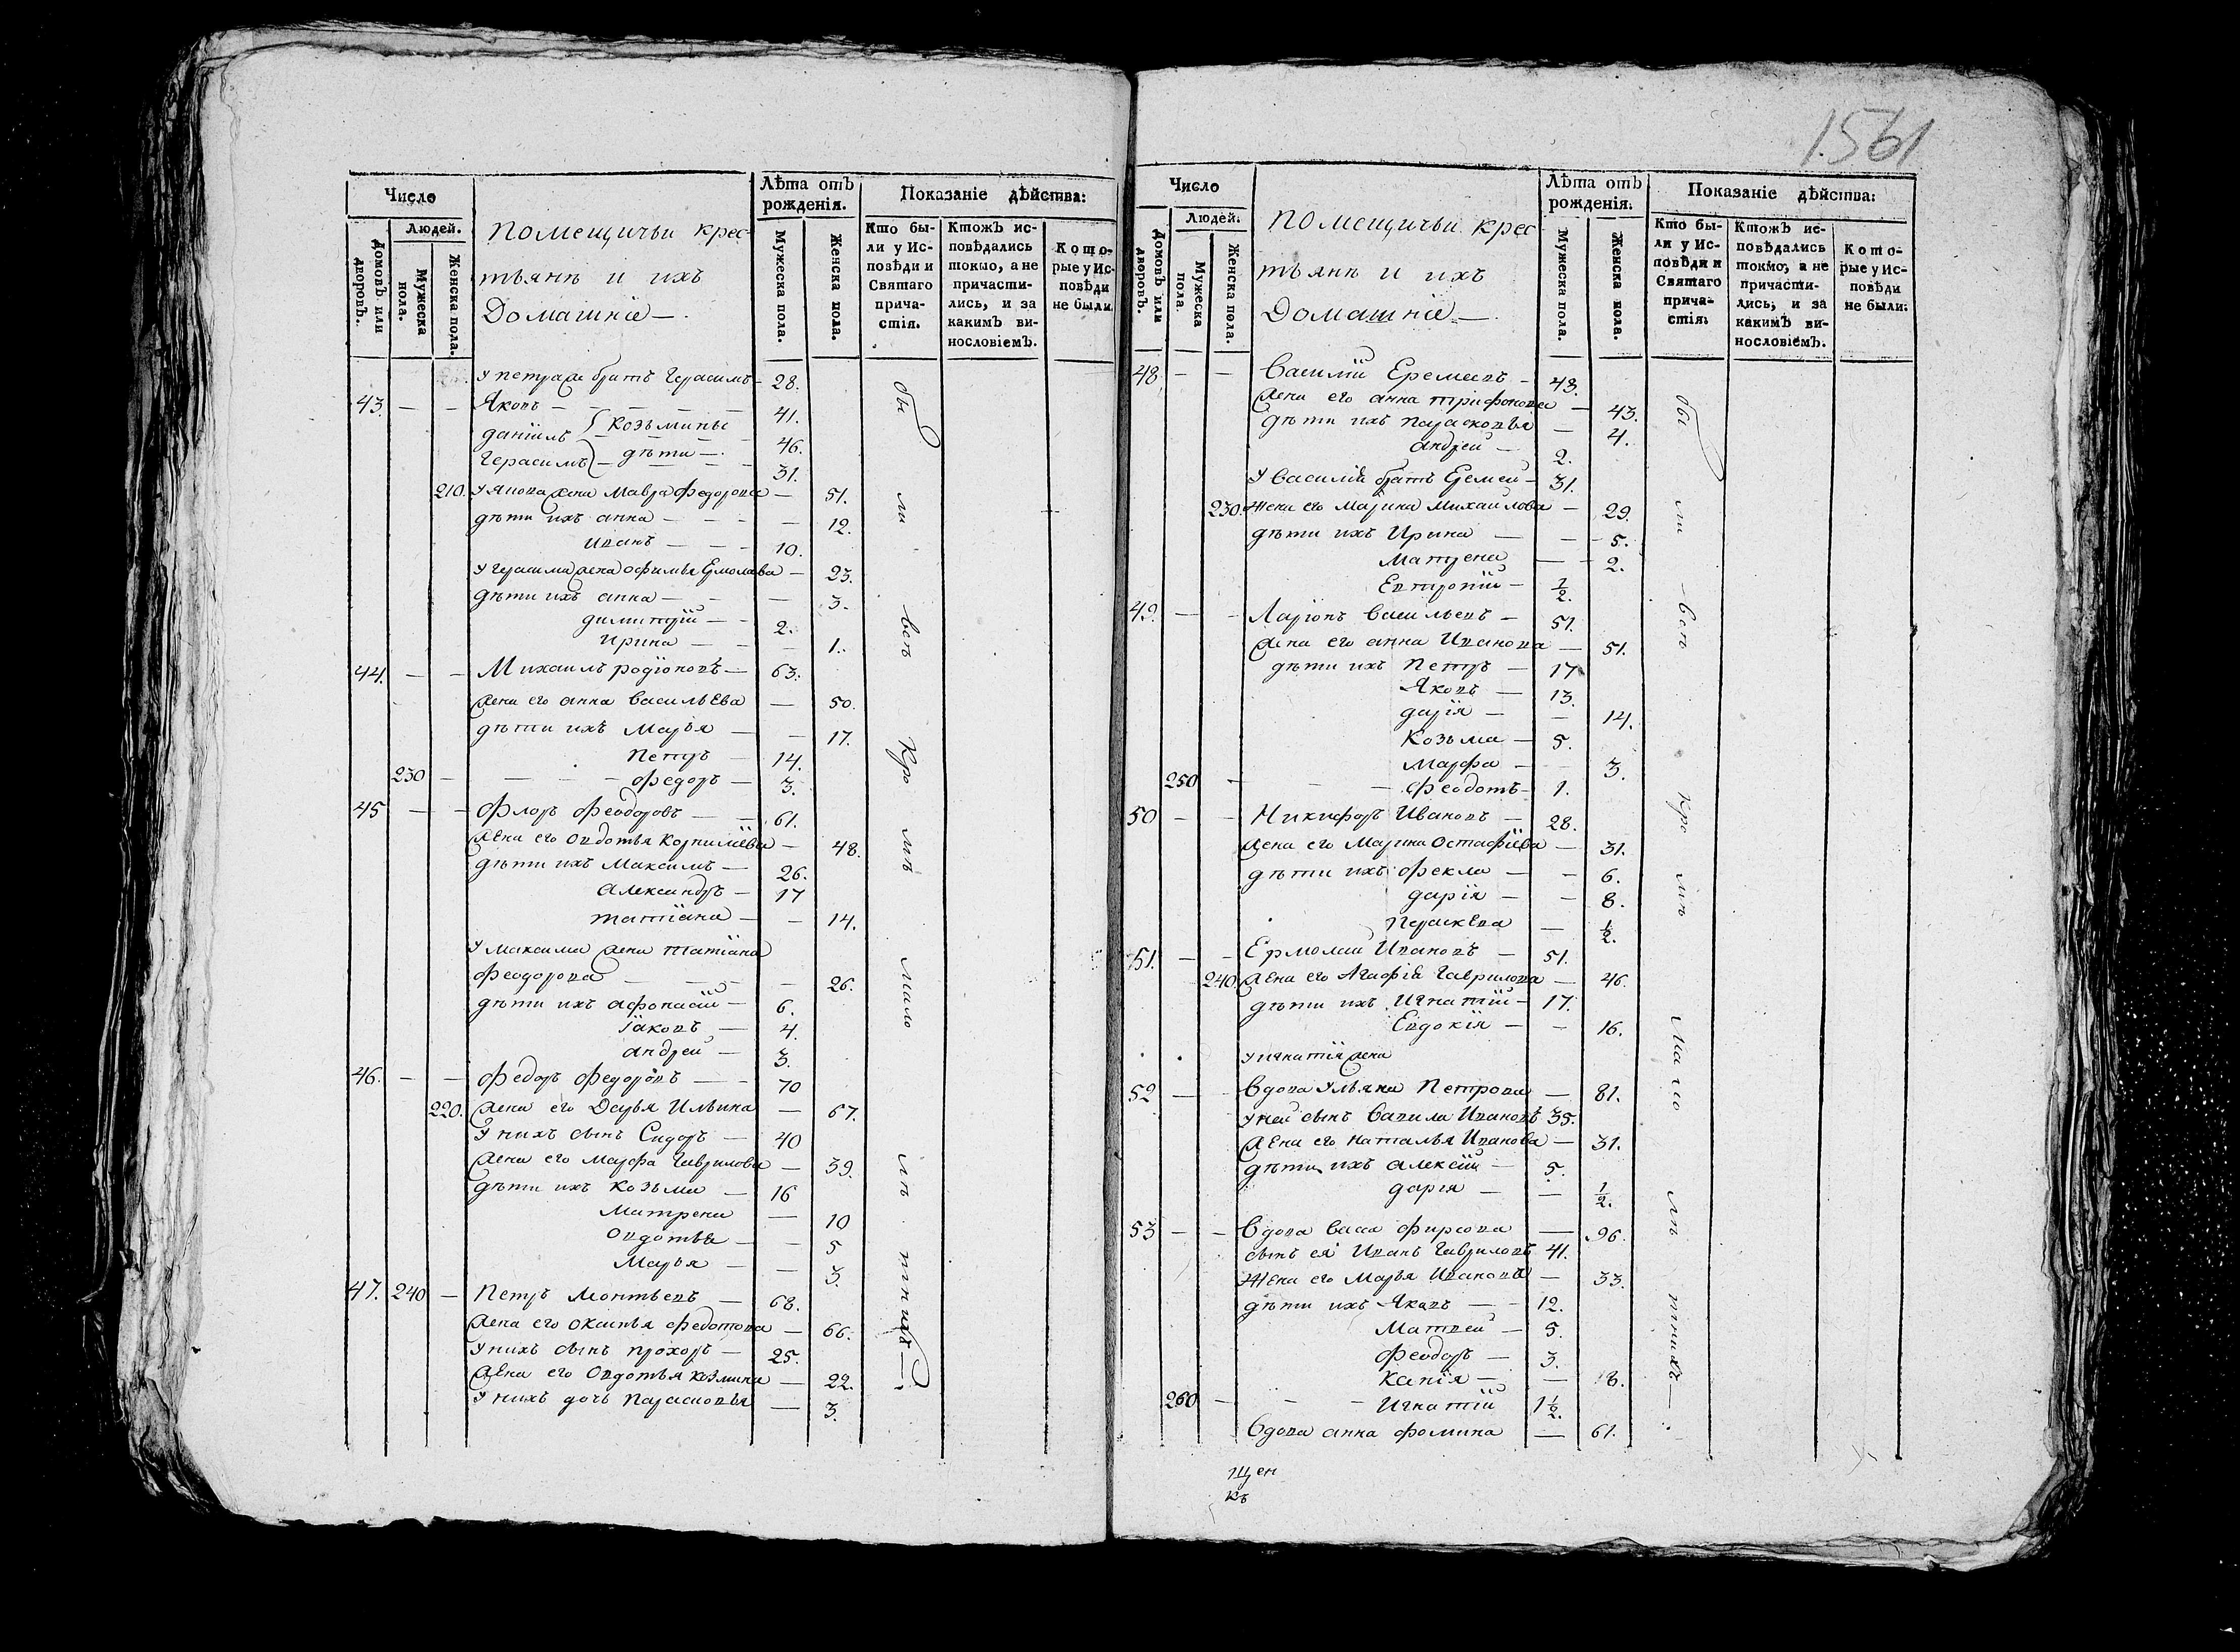 1561
Число
Людей.
Домовъ или дворовъ.
Мужеска пола.
Женска пола.
помещичьи крес-
тьянѣ и ихъ
Домашнїе —.
Лѣта отъ рожденїя.
Мужеска пола.
Женска пола.
Показанїе дѣйства:
Кто бы-
ли у Ис-
повѣди и
Святаго
прича-
стїя.
Ктожъ ис-
повѣдались
токмо, а не
причасти-
лись, и за
какимъ ви-
нословїемъ.
Кото-
рые у Ис-
повѣди
не были
у петра братъ Герасимъ — 28.
43. — — Яковъ — 41.
данїилъ } Козьмины 46.
Герасимъ } — дѣти —. 31.
210. у якова жена Мавра федорова — 51.
дѣти ихъ анна — — 12.
иванъ — — 10.
у герасима жена офимья Ермолаева — 23.
дѣти ихъ анна — — 3.
димитрїй — 2.
Ирина — — 1.
44. — — Михаилъ родїоновъ — 63.
жена его анна васильева — 50.
дѣти ихъ Марья — — 17.
петръ — 14.
230 — — — — федоръ — 3.
45 — — флоръ феодоровъ — 61.
жена его овдотья корнилїева — 48.
дѣти ихъ Максимъ — 26.
александръ — 17
татїана — — 14.
у максима жена татїана
феодорова — — 26.
дѣти ихъ афонасїй — 6.
їаковъ — 4.
андрей — 3.
46. — — федоръ федоровъ — 70
220. жена его Дарья Ильина — 67.
у нихъ сынъ Сидоръ — 40
жена его марфа гаврилова — 39.
дѣти ихъ козьма — 16
матрена — 10
овдотья — — 5
марья — — 3.
47. 240 — петръ леонтьевъ — 68.
жена его оксинья федотова — 66.
у нихъ сынъ прохоръ — 25.
жена его овдотья козмина — 22.
у нихъ дочь парасковья — 3.
бы ли всѣ кро мѣ мало лѣ тнихъ —
Число
Людей.
Домовъ или дворовъ.
Мужеска пола.
Женска пола.
помещичьи крес-
тьянѣ и ихъ
Домашнїе —.
Лѣта отъ рожденїя.
Мужеска пола.
Женска пола.
Показанїе дѣйства:
Кто бы-
ли у Ис-
повѣди и
Святаго
прича-
стїя.
Ктожъ ис-
повѣдались
токмо, а не
причасти-
лись, и за
какимъ ви-
нословїемъ.
Кото-
рые у Ис-
повѣди
не были.
48 — — василїй Еремеевъ — 43.
жена его анна трифонова — 43.
дѣти ихъ парасковья — 4.
андрей — 2.
у василїя братъ Еремей — 31.
230. жена его марина михаилова — 29.
дѣти ихъ Ирина — — 5.
матрена — — 2.
Евтропїй — ½.
49. — — Ларїонъ васильевъ — 51.
жена его анна Иванова — 51.
дѣти ихъ петръ — 17
яковъ — 13.
дарїя — — 14.
козьма — 5.
марфа — — 3.
250 — — феодотъ — 1.
50 — — Никифоръ Ивановъ — 28.
жена его марина остафїева — 31.
дѣти ихъ фекла — — 6.
дарїя — — 8.
параскева — ½.
51. — — Ермолай Ивановъ — 51.
240. жена его Агафїя гаврилова — 46.
дѣти ихъ Игнатїй — 17.
Евдокїя — — 16.
у игнатїя жена
52 — — вдова ульяна петрова — 81.
у ней сынъ вавила Ивановъ 35.
жена его наталья Иванова — 31.
дѣти ихъ алексїй — 5.
дарїя — — ½.
53 — — вдова васса фирсова — 96.
сынъ ея Иванъ гавриловъ 41.
жена его марья Иванова — 33.
дѣти ихъ яковъ — 12.
матвей — 5.
феодоръ — 3.
ксенїя — — 8.
260 — — Игнатїй 1½.
вдова анна фомина — 61.
бы ли всѣ кро мѣ мало лѣ тнихъ —